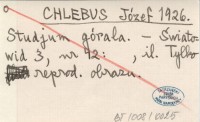 CHLEBUS Józef 1926.
Studjum górala. – Świato-
wid 3, nr 42: , il. Tylko
reprod. obrazu.
BJ/008/0025